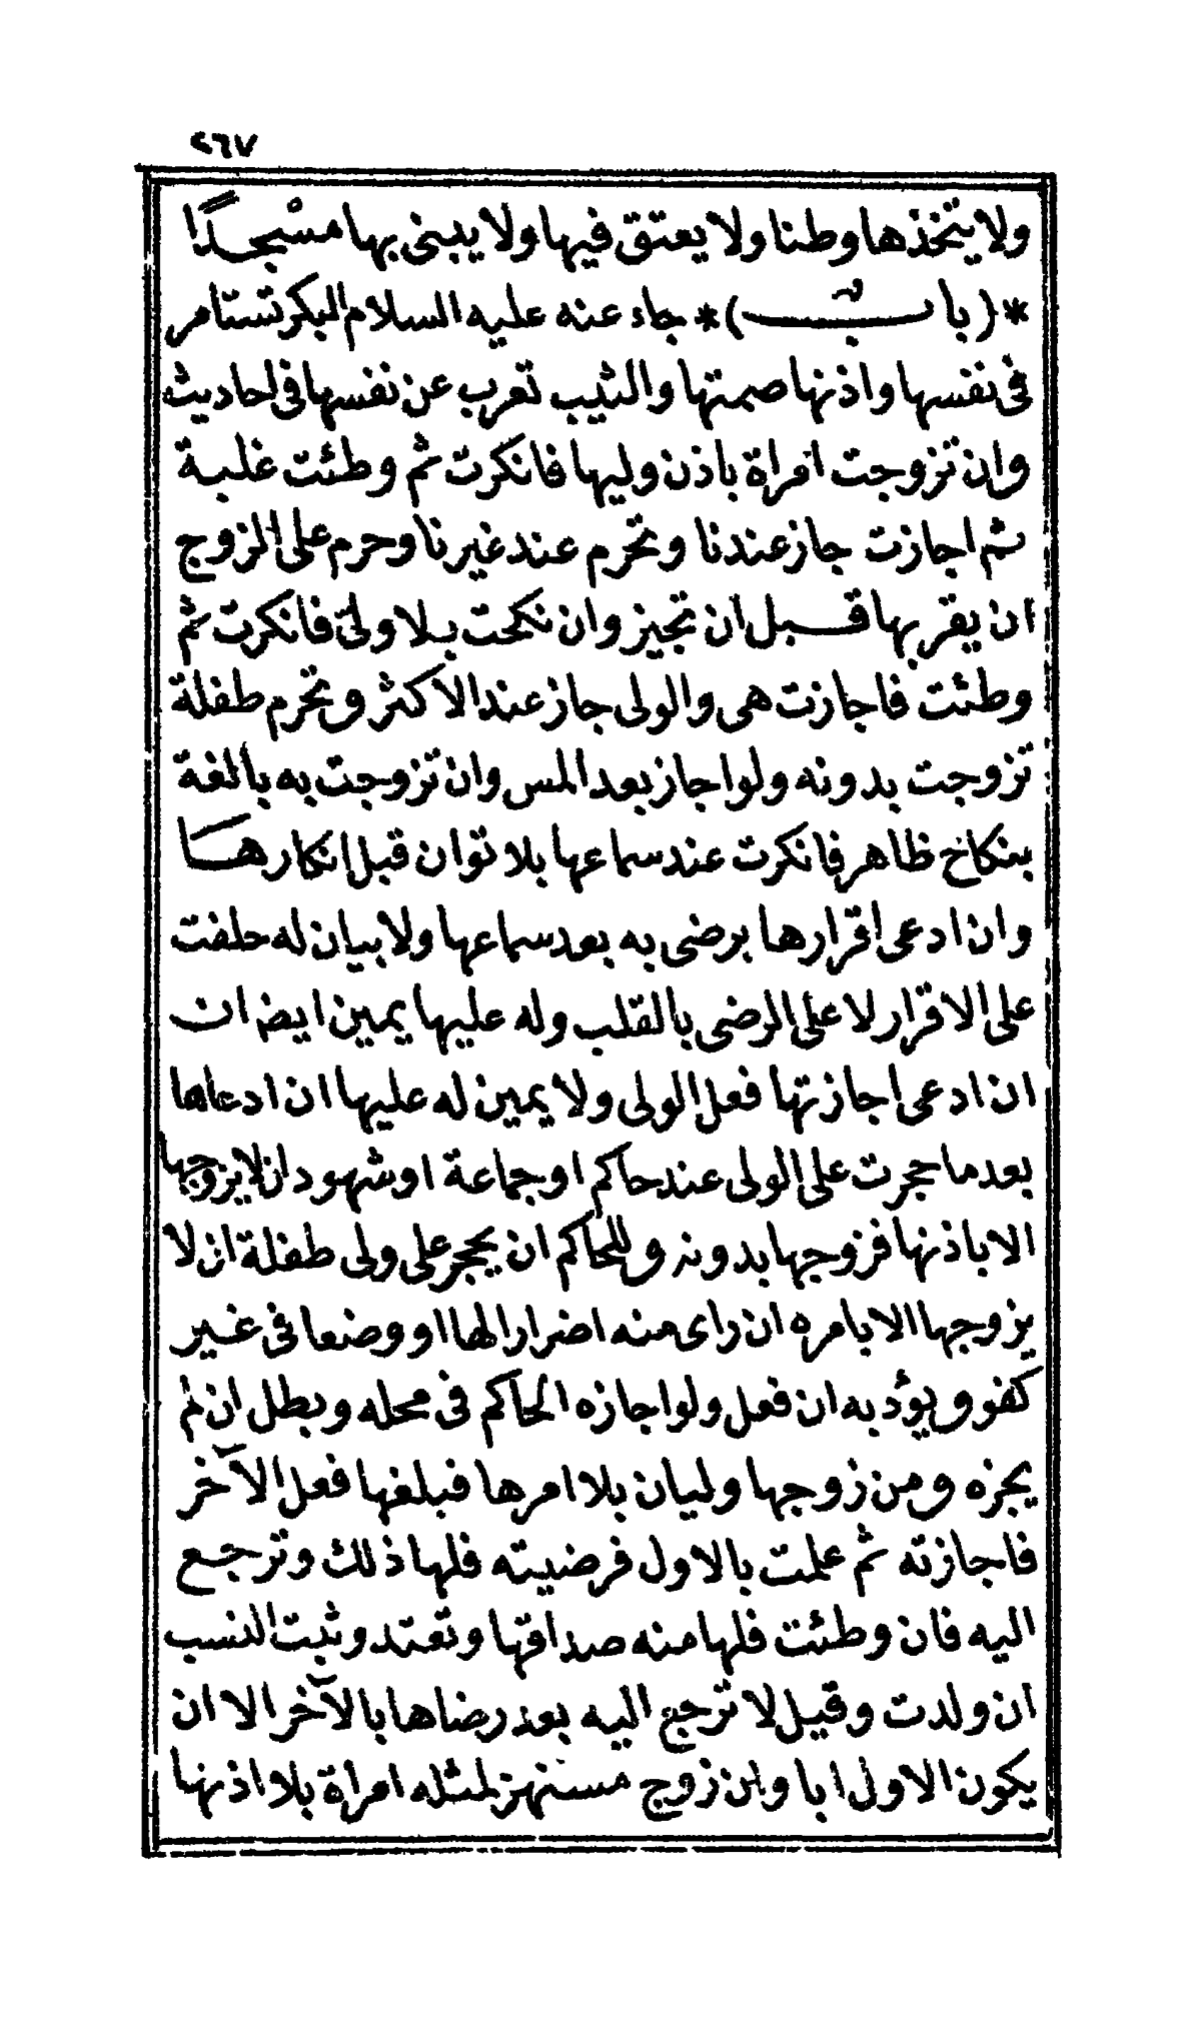 ٢٦٧
ولا يتخذها وطنا ولا يعتق فيها ولا يبنى بها مسجدًا
*(باب)* جاء عنه عليه السلام البكر تستامر
فى نفسها واذنها صمتها والثيب تعرب عن نفسها فى احاديث
وان تزوجت امراة باذن وليها فانكرت ثم وطئت غلبة
ثم اجازت جاز عندنا وتحرم عند غيرنا وحرم على الزوج
ان يقر بها قبل ان تجيز وان نكحت بلا ولى فانكرت ثم
وطئت فاجازت هى والولى جاز عند الاكثر وتحرم طفلة
تزوجت بدونه ولو اجاز بعد المس وان تزوجت به بالغة
بنكاح ظاهر فانكرت عند سماعها بلا توان قبل انكارها
وان ادعى اقرارها برضى به بعد سماعها ولا بيان له حلفت
على الاقرار لا على الرضى بالقلب وله عليها يمين ايضا ان
ان ادعى اجازتها فعل الولى ولا يمين له عليها ان ادعاها
بعد ما حجرت على الولى عند حاكم او جماعة او شهود ان لا يزوجها
الا باذنها فزوجها بدونه وللحاكم ان يحجر على ولى طفلة ان لا
يزوجها الا بامره ان راى منه اضرارا لها او وضعا فى غير
كفو ويؤدبه ان فعل ولو اجازه الحاكم فى محله وبطل ان لم
يجزه ومن زوجها وليان بلا امرها فبلغها فعل الآخر
فاجازته ثم علمت بالاول فرضيته فلها ذلك وترجع
اليه فان وطئت فلها منه صداقها وتعتد وثبت النسب
ان ولدت وقيل لا ترجع اليه بعد رضاها بالآخر الا ان
يكون الاول ابا وان زوج مستنهز لمثله امراة بلا اذنها